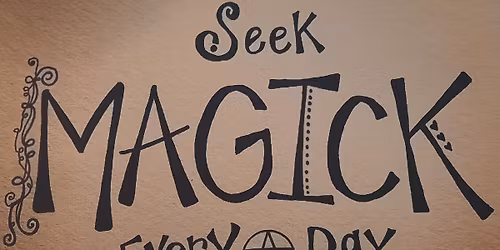 Seek
MAGICK
Every Day